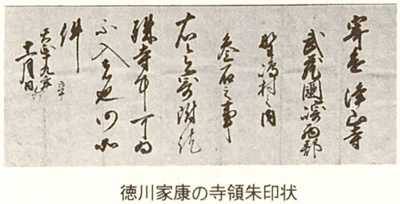 寄進 浄山寺
武蔵國崎西郡
野嶋村之内
叁石之事
右令寄附訖
殊寺中可為
不入者也仍如
件
天正十九年辛卯
十一月日
徳川家康の寺領朱印状